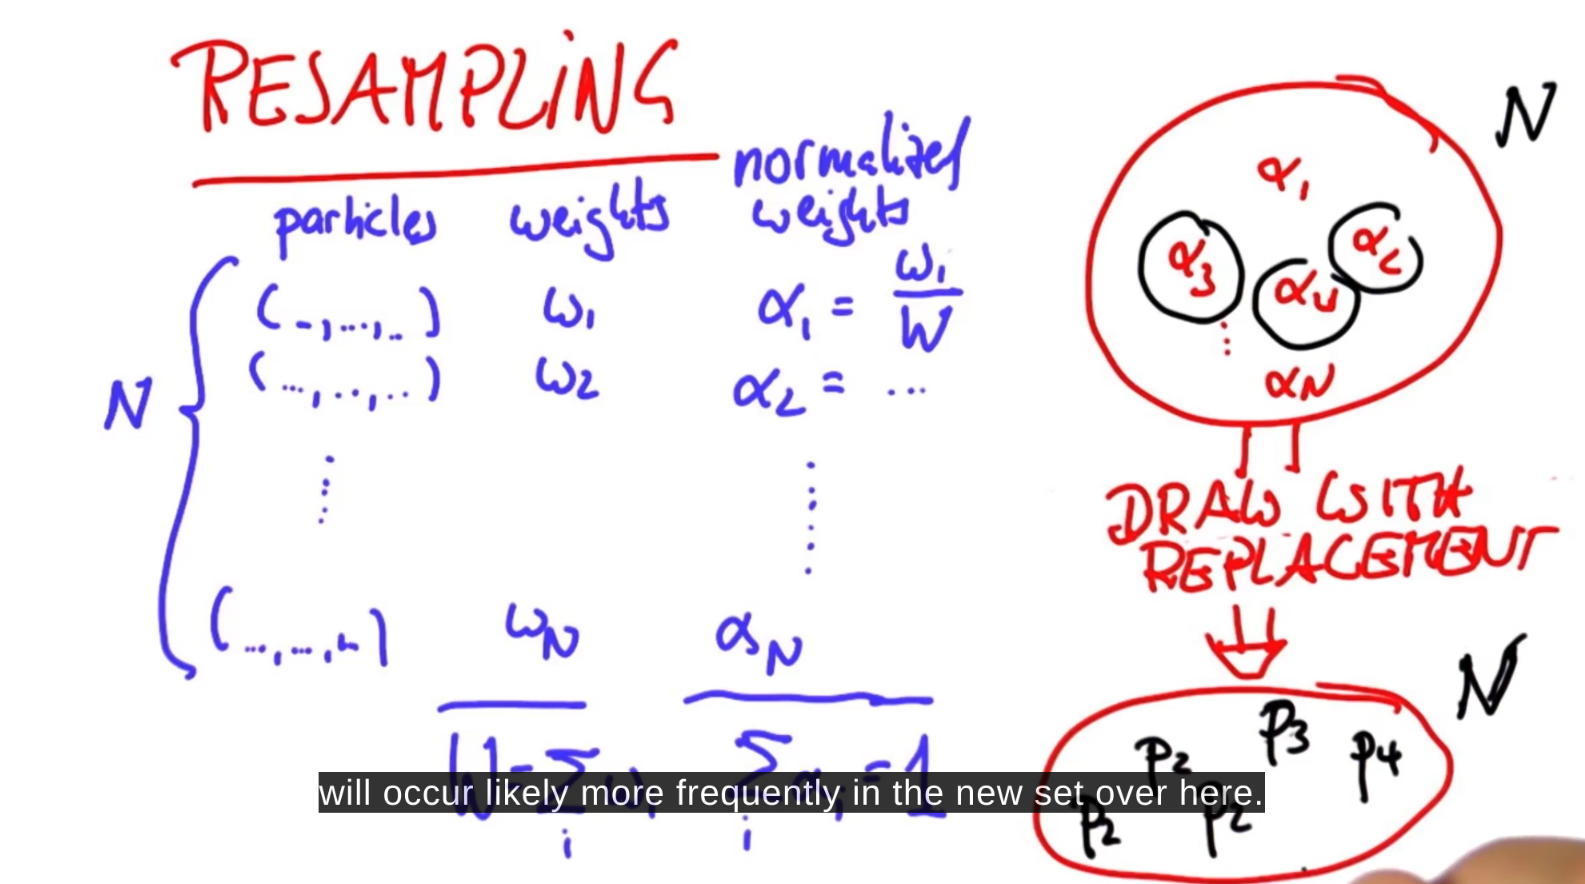 RESAMPLING
particles weights normalized weights
N
(-,...,..) ω1 α1 = ω1/W
(...,..,..) ω2 α2 = ...
(...,...,..) ωN αN
W = Σi ωi Σi αi = 1
N
α1
α3 α4 α2
αN
DRAW WITH
REPLACEMENT
N
p2 p3 p4
p2 p2
will occur likely more frequently in the new set over here.